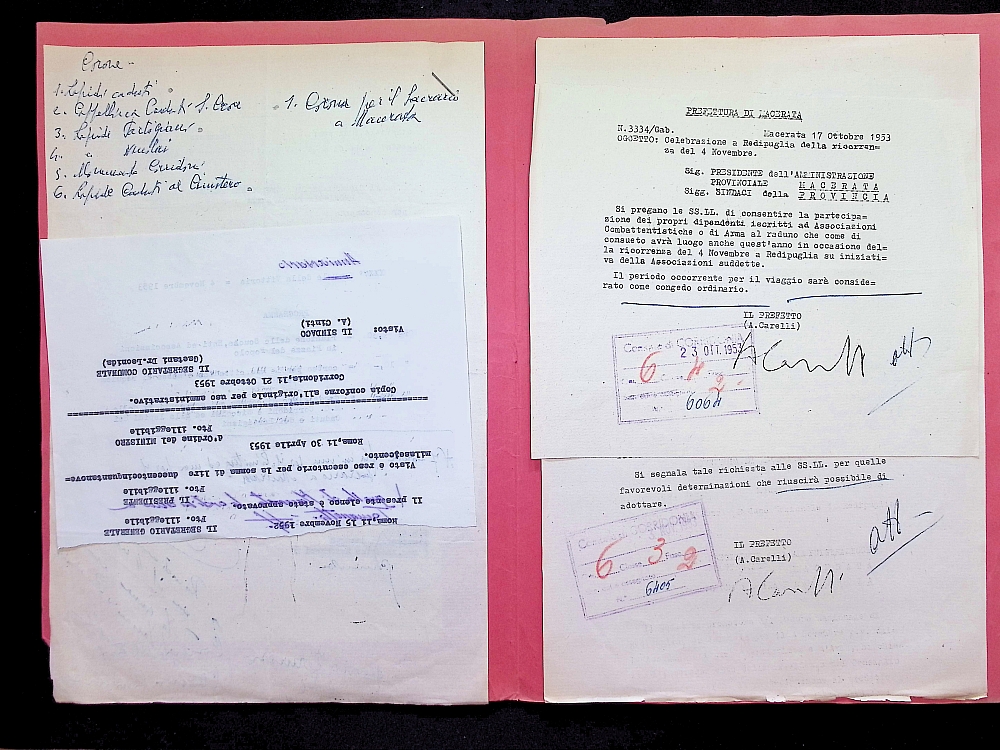 Corone -
1. Lapidi caduti
2. Cappellina Caduti S. Croce
3. Lapide Partigiani
4. " 
5. Monumento Corridoni
6. Lapide Caduti al Cimitero
1. Corona per il Sacrario
a Macerata
Anniversario
Roma,li 15 Novembre 1952.
IL SEGRETARIO GENERALE
Fto. illeggibile
Il presente elenco è stato approvato.
IL PRESIDENTE
Fto. illeggibile
Visto è reso esecutorio per la somma di lire duecentocinquanta=
milaseicento.
Roma,li 30 Aprile 1953
d'Ordine del MINISTRO
Fto. illeggibile
Copia conforme all'originale per uso amministrativo.
Corridonia,li 21 Ottobre 1953
IL SEGRETARIO COMUNALE
(Gaetani Dr.Leonida)
Visto: IL SINDACO
(A. Cinti)
PREFETTURA DI MACERATA
N.3334/Gab. Macerata 17 Ottobre 1953
OGGETTO: Celebrazione a Redipuglia della ricorren=
za del 4 Novembre.
Sig. PRESIDENTE dell'AMMINISTRAZIONE
PROVINCIALE MACERATA
Sigg. SINDACI della PROVINCIA
Si pregano le SS.LL. di consentire la partecipa=
zione dei propri dipendenti iscritti ad Associazioni
Combattentistiche o di Arma al raduno che come di
consueto avrà luogo anche quest'anno in occasione del=
la ricorrenza del 4 Novembre a Redipuglia su iniziati=
va della Associazioni suddette.
Il periodo occorrente per il viaggio sarà conside=
rato come congedo ordinario.
IL PREFETTO
(A.Carelli)
Comune di CORRIDONIA
23 OTT. 1953
6 4 2
N. 6064
ACarelli
atti
Si segnala tale richiesta alle SS.LL. per quelle
favorevoli determinazioni che riuscirà possibile di
adottare.
IL PREFETTO
(A.Carelli)
Comune di CORRIDONIA
6 Classe 3 Fasc. 2
N. 6405
ACarelli
atti